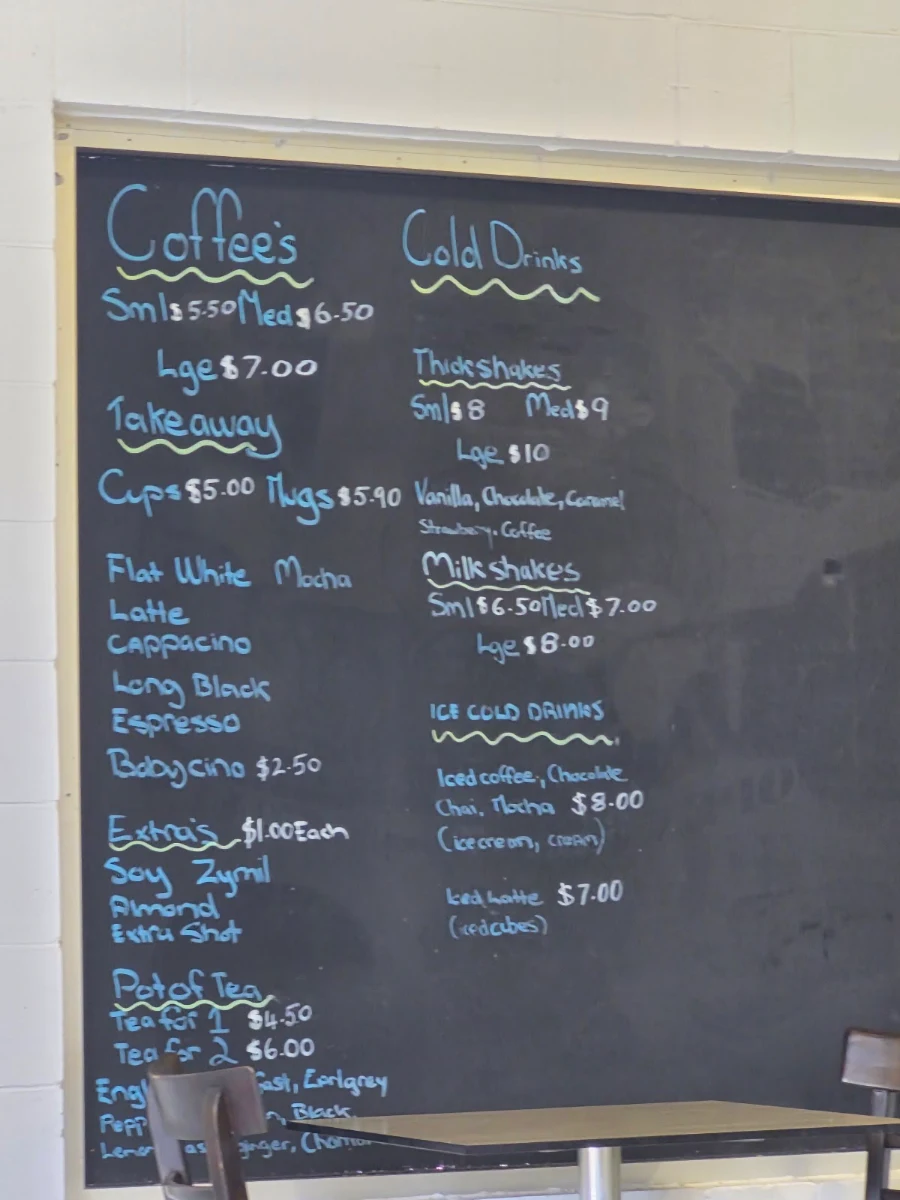 Coffee's
Sml $5.50 Med $6.50
Lge $7.00
Takeaway
Cups $5.00 Mugs $5.90
Flat White Mocha
Latte
Cappacino
Long Black
Espresso
Babycino $2.50
Extra's $1.00 Each
Soy Zymil
Almond
Extra Shot
Pot of Tea
Tea for 1 $4.50
Tea for 2 $6.00
Earlgrey
Black
ginger,
Cold Drinks
Thickshakes
Sml $8 Med $9
Lge $10
Vanilla, Chocolate, Caramel
Strawbery. Coffee
Milkshakes
Sml $6.50 Med $7.00
Lge $8.00
ICE COLD DRINKS
Iced coffee, Chocolate
Chai, Mocha $8.00
(icecream, cream)
Iced Latte $7.00
(icedcubes)